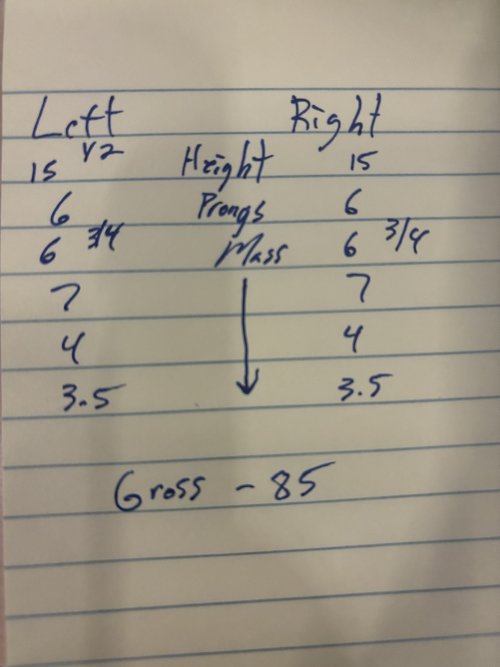 Left Right
15 1/2 Height 15
6 Prongs 6
6 3/4 Mass 6 3/4
7 7
4 4
3.5 3.5
Gross - 85